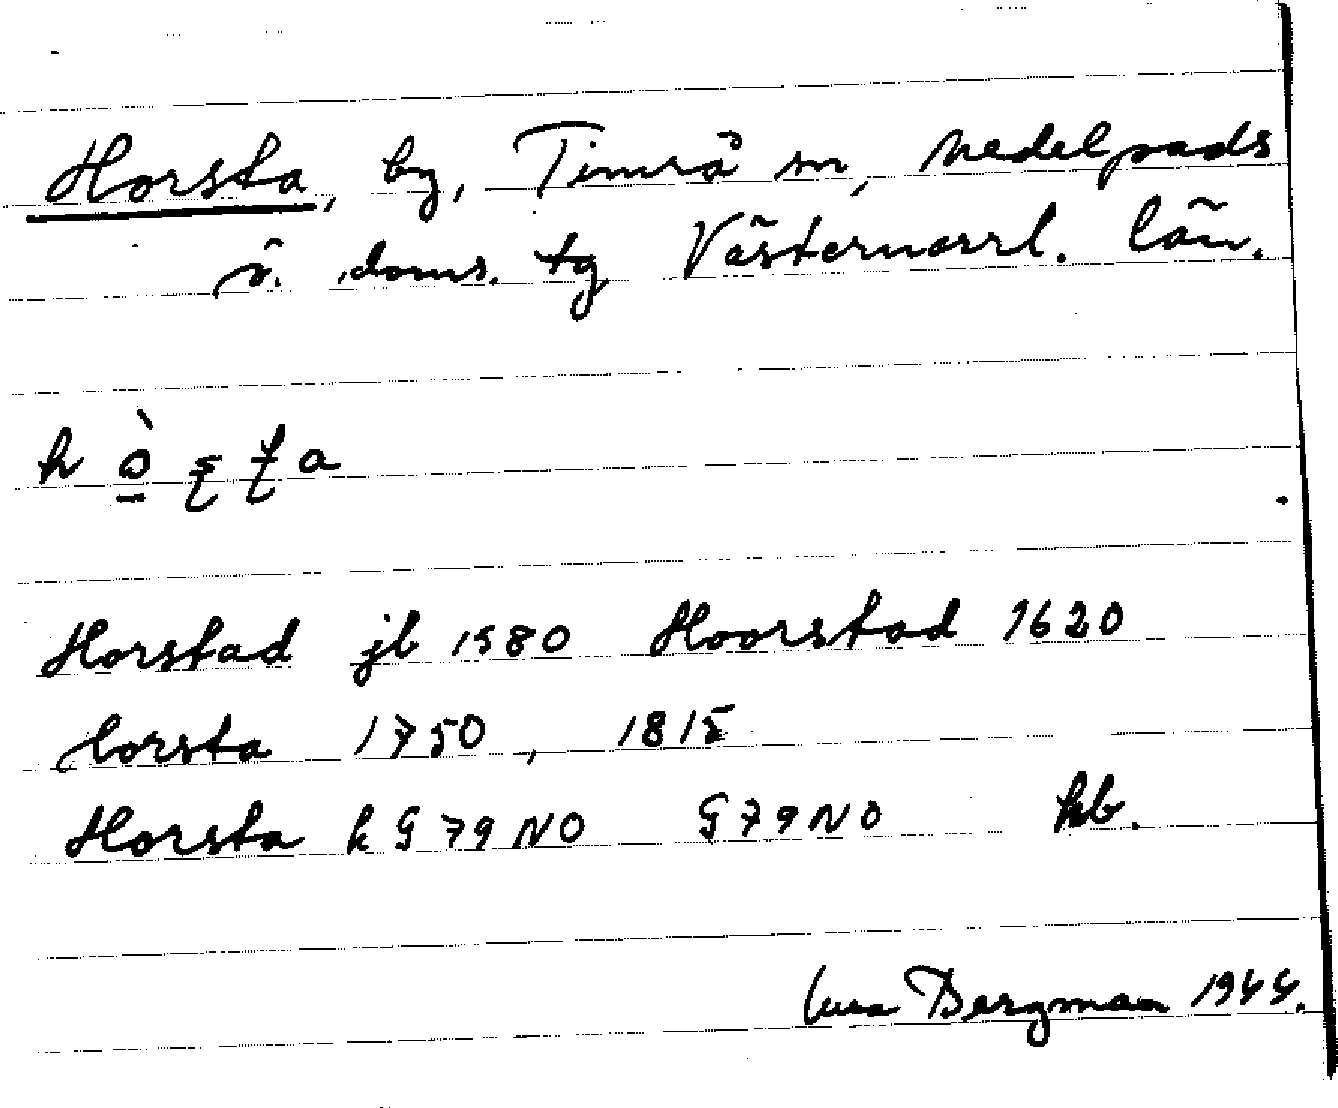 Horsta, by, Timrå sn, Medelpads
ö. doms. tg Västernorrl. län.
h ò̱ ʂ ʈ a
Horstad jb 1580 Hoorstad 1620
Horsta 1750, 1815
Horsta k G 79 NO G 79 NO hb.
Bergman 1944.